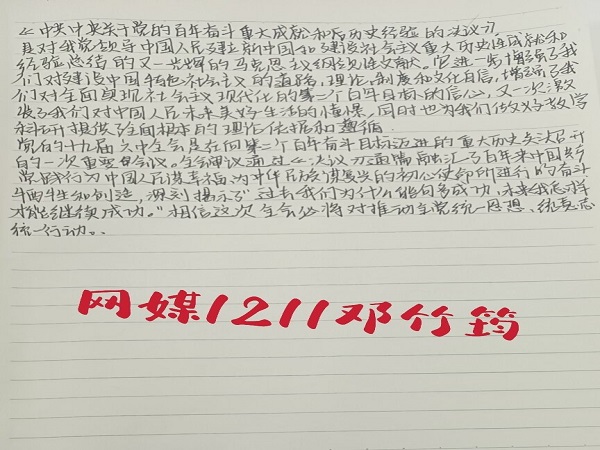 《中共中央关于党的百年奋斗重大成就和历史经验的决议》
是对我党领导中国人民建立新中国和建设社会主义重大历史性成就和
经验总结的又一光辉的马克思主义纲领性文献。它进一步增强了我
们对建设中国特色社会主义的道路,理论,制度和文化自信,增强了我
们对全面实现社会主义现代化的第二个百年目标的信心,又一次激
发了我们对中国人民未来美好生活的憧憬。同时也为我们做好教学
科研提供了全面根本的理论依据和遵循.
党的十九届六中全会是在向第二个百年奋斗目标迈进的重大历史关头召开
的一次重要会议。全会审议通过《决议》通篇融汇了百年来中国共产
党践行为中国人民谋幸福,为中华民族谋复兴的初心使命所进行的奋斗
牺牲和创造,深刻揭示了"过去我们为什么能够成功,未来我们怎样
才能继续成功。"相信这次全会必将对推动全党统一思想、统一意志
统一行动。
网媒1211邓竹筠